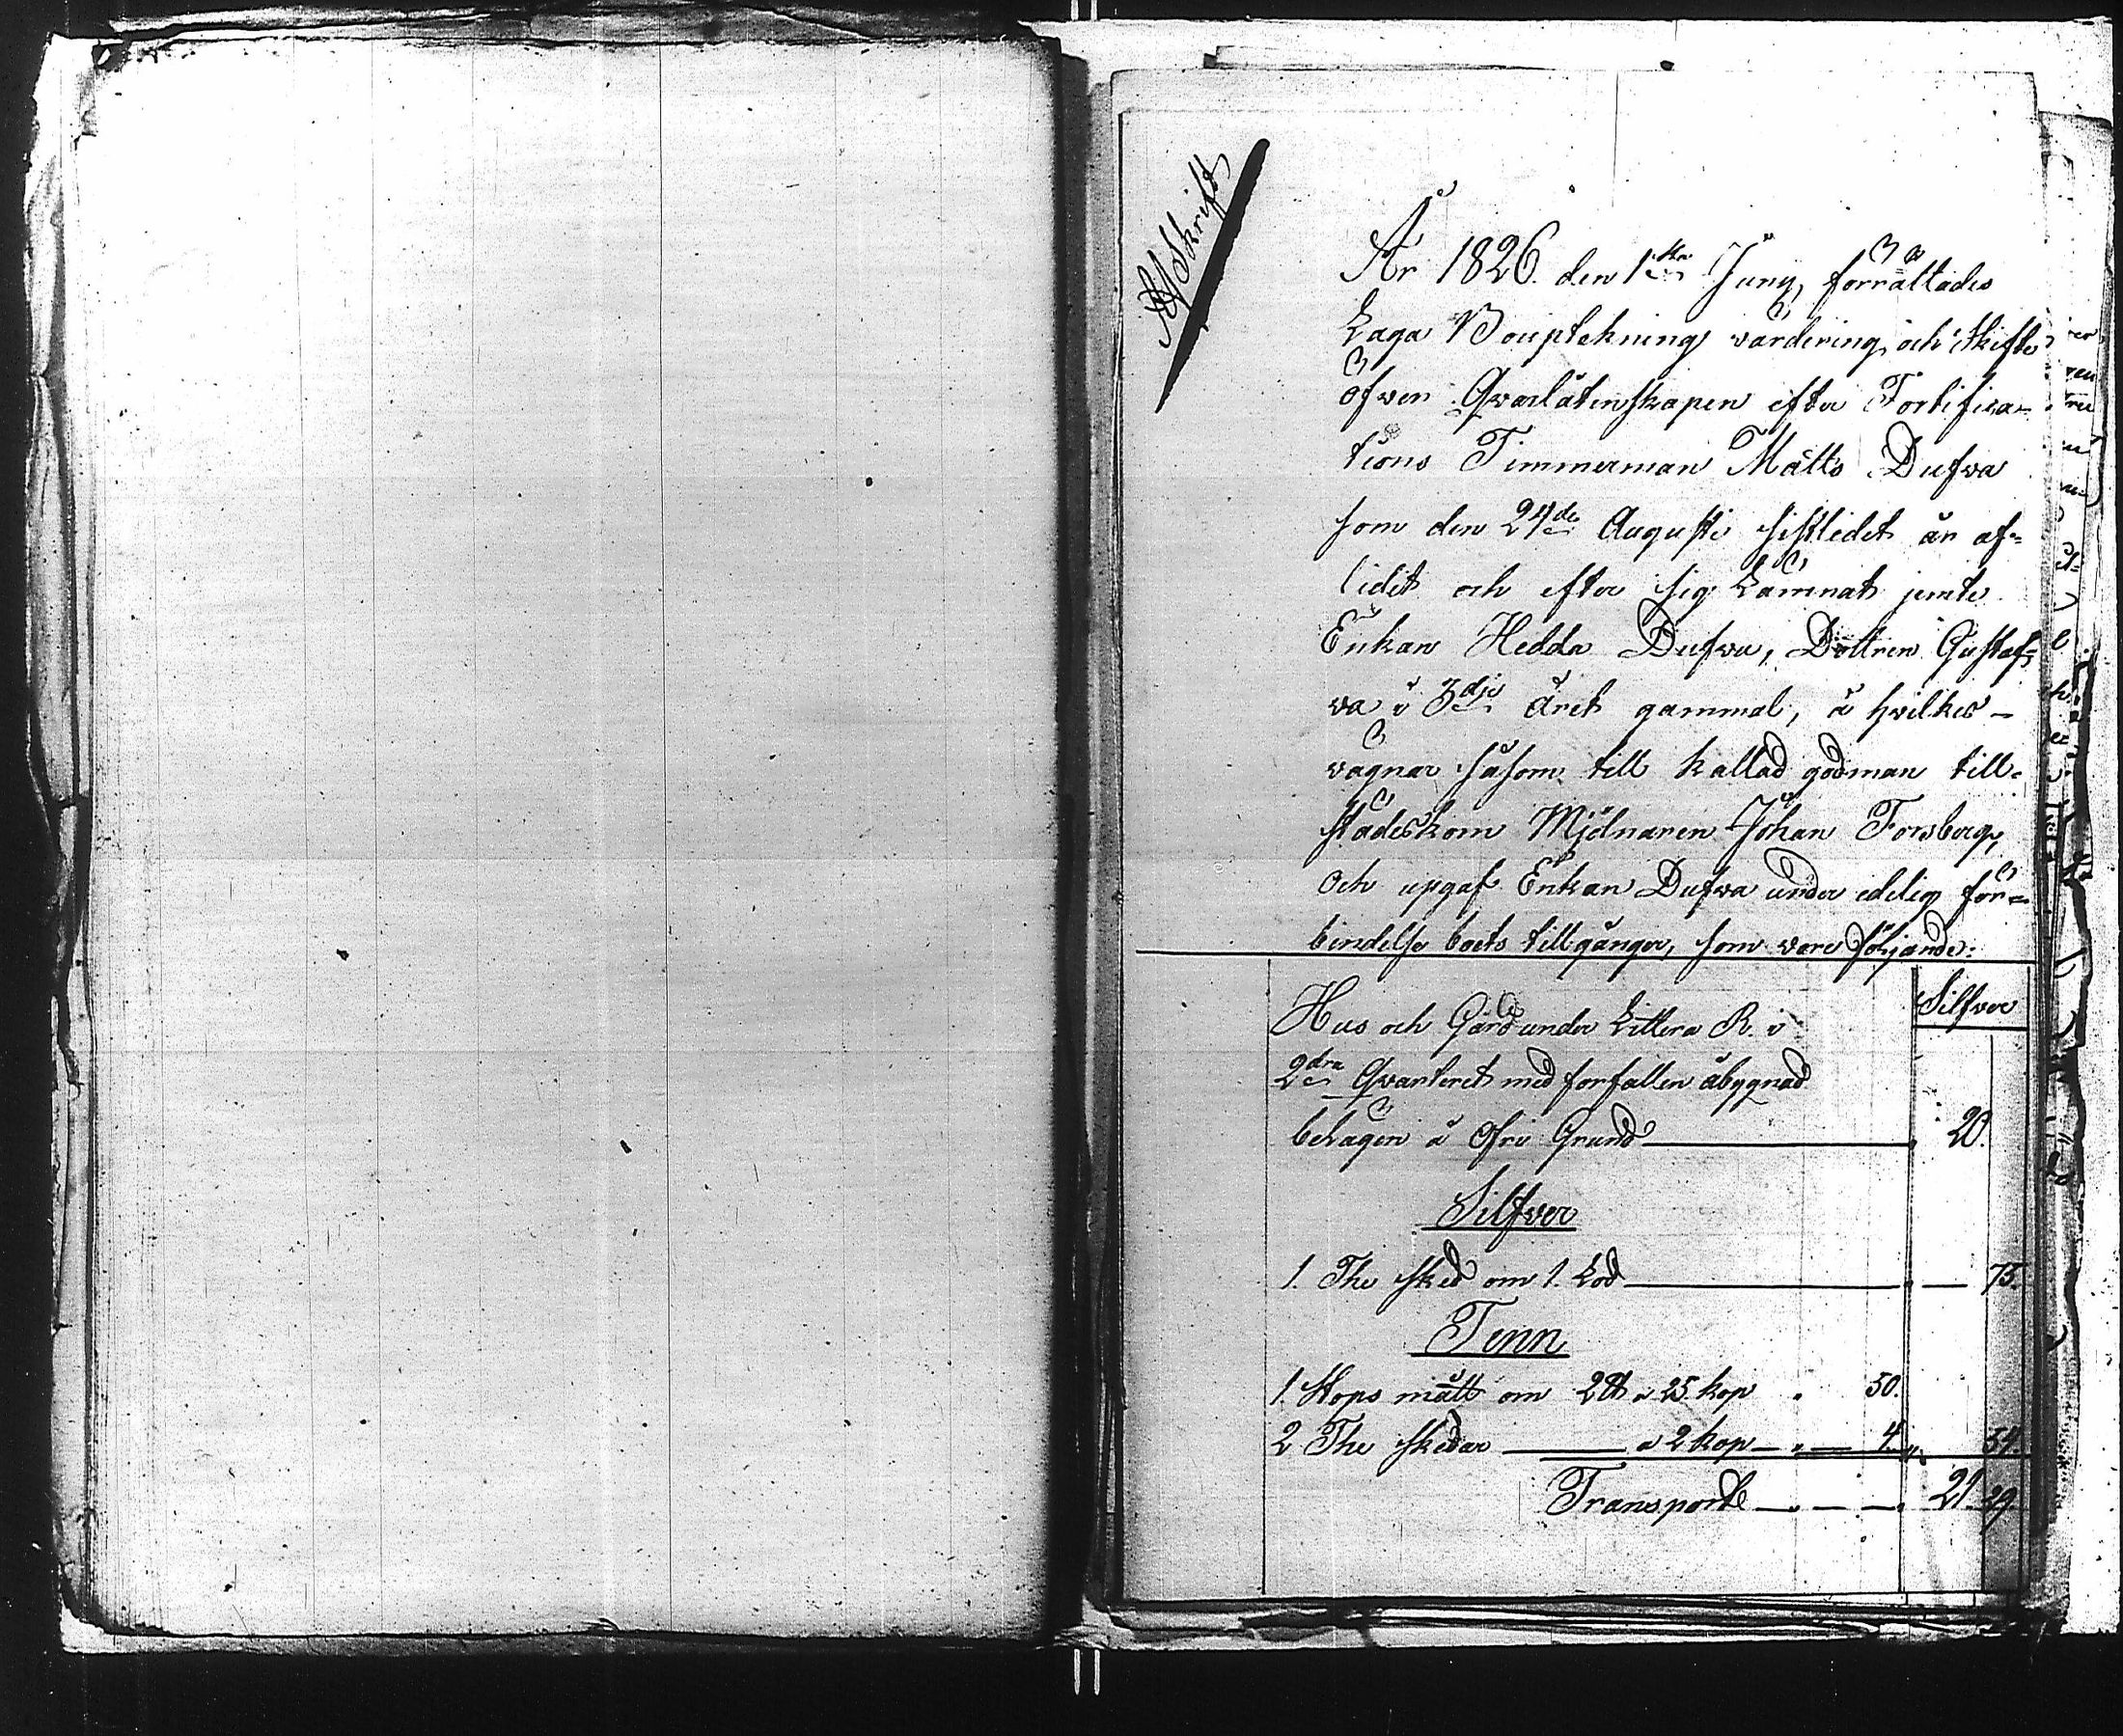 Afskrift
År 1826. den 1sta Juny, förrättades
Laga Bouptekning värdering och skifte
öfver Qvarlåtenskapen efter Fortifica-
tions Timmerman Matts Dufva
som den 24de Augusti sistledet är af-
lidit och efter sig Lämnat jemte
Enkan Hedda Dufva, Dottren Gustaf-
va i 3dje året gammal, å hvilkes-
vägnar såsom till kallad godman till-
städeskom Mjölnaren Johan Forsberg,
Och upgaf Enkan Dufva under edelig för-
bindelse boets tillgånger, som voro följande:
Silfver
Hus och Gård under Littera R. i
2dra Qvarteret med förfallen åbygnad
belägen å Ofri Grund 20.
Silfver
1. The sked om 1. Lod 75.
Tenn
1. Stops mått om 2 ℔ a 25 kop 50.
2 The skedar a 2 kop 4. 54.
Transporte 21 29